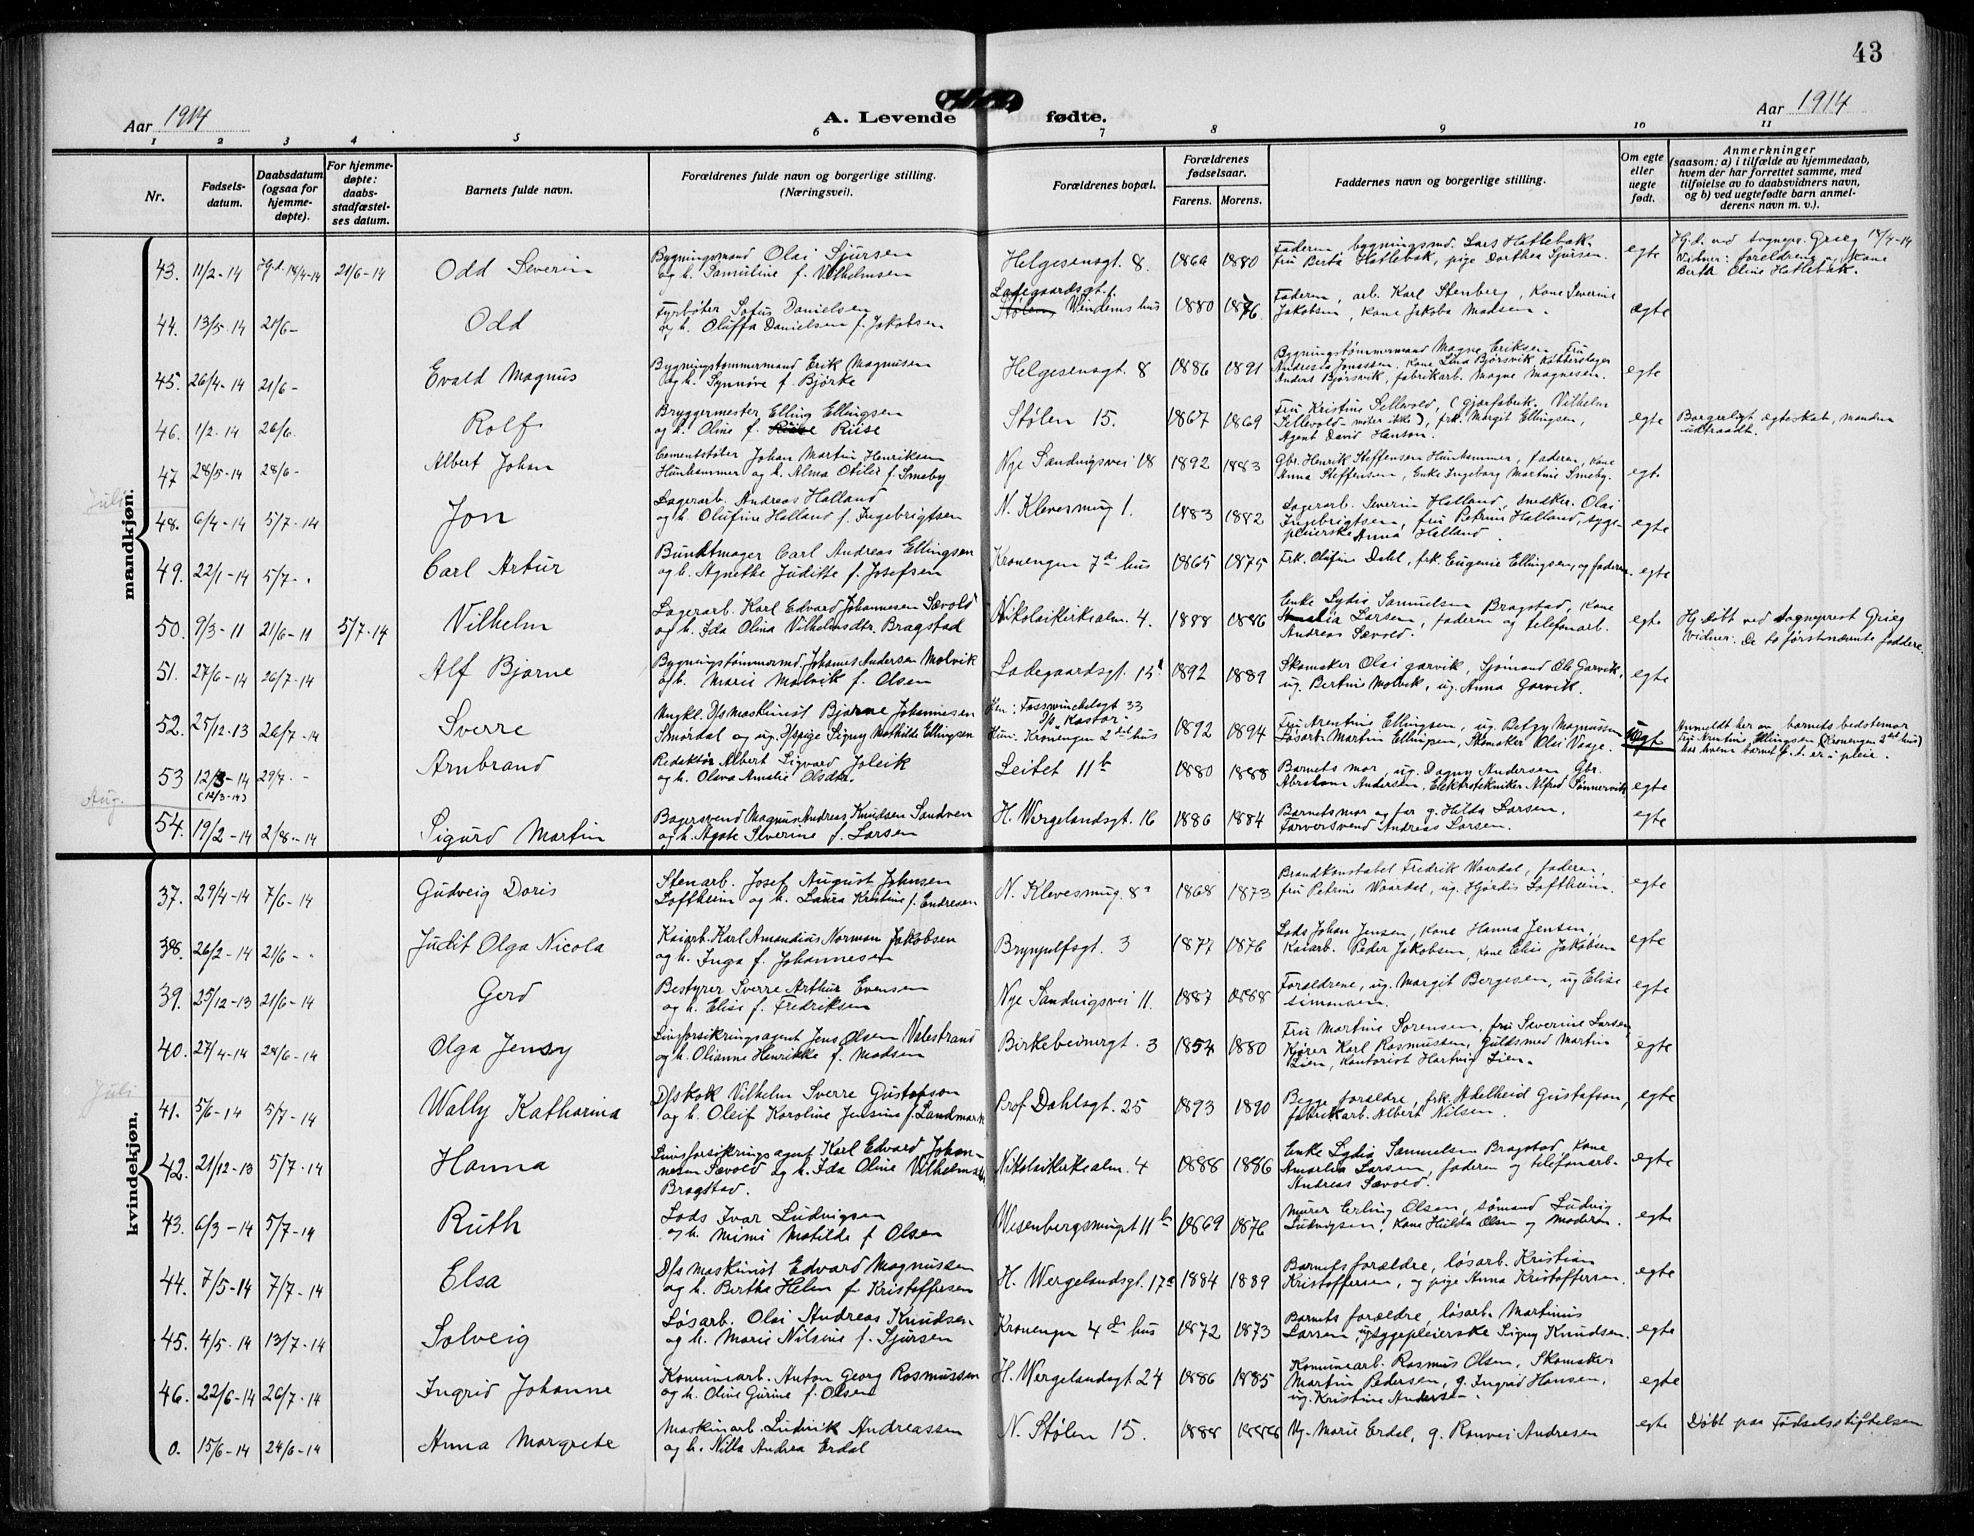 43
Aar 1914
A. Levende fødte.
Aar 1914
1 2 3 4 5 6 7 8 9 10 11
Nr.
Fødsels-
datum.
Daabsdatum
(ogsaa for
hjemme-
døpte).
For hjemme-
døpte:
daabs-
stadfæstel-
ses datum.
Barnets fulde navn.
Forældrenes fulde navn og borgerlige stilling.
(Næringsvei).
Forældrenes bopæl.
Forældrenes
fødselsaar.
Farens. Morens.
Faddernes navn og borgerlige stilling.
Om egte
eller
uegte
født.
Anmerkninger
(saasom: a) i tilfælde av hjemmedaab,
hvem der har forrettet samme, med
tilføielse av to daabsvidners navn,
og b) ved uegtefødte barn anmel-
derens navn m. v.).
mandkjøn.
43. 11/2-14 Hj.d. 18/4-14 21/6-14 Odd Severin
Bygningsmand Olai Sjursen
og h. Samuline f. Vilhelmsen
Helgesensgt. 8. 1880
Faderen, bygningsmd. Lars Hatlebak.
Fru Berta Hatlebak, pige Dorthea Sjursen.
egte
Hj.d. ved sognepr. Grieg 18/4-14
Vidner: foreldrene, kone
Berta Oline Hatlebak.
44. 13/5-14 21/6- Odd
Fyrbøter Sofus Danielsen
og h. Oluffa Danielsen f. Jakobsen
Ladegaardsgt.
Stølen, Windems hus 1880 1876.
Faderen, arb. Karl Stenberg, Kone Severine
Jakobsen, kone Jakoba Madsen.
egte
45. 26/4-14 21/6- Evald Magnus
Bygningstømmermand Erik Magnusen
og h. Synnøve f. Bjørke
Helgesensgt. 8 1886 1891
Bygningstømmermand Magne Eriksen. Fru
Andresia Jonassen, Kone Lina Bjørsvik, Kobberslager
Anders Bjørsvik, fabrikarb. Magne Magnesen.
egte
46. 1/2-14 26/6. Rolf
Bryggermester Elling Ellingsen
og h. Oline f. Riise
Stølen 15. 1867 1869
Fru Kristine Sellevold, (gjærfabrik. Vilhelm
Sellevold - møter ikke), frk. Margit Ellingsen,
Agent David Hanson.
egte
Borgerligt ægteskab, manden
udtraadt.
47 28/5-14 28/6- Albert Johan
Cementstøber Johan Martin Henriksen
Hunhammer og h. Alma Otilie f. Smeby
Nye Sandvigsvei 18 1892 1883
Gbr. Henrik Steffensen Hunhammer, faderen, kone
Anna Steffensen, Enke Ingeborg Martine Smeby.
egt.
Juli
48. 6/4-14 5/7-14 Jon
Lagerarb. Andreas Halland
og h. Olufine Halland f. Ingebrigtsen
N. Klevesmug 1. 1883 1882
Lagerarb. Severin Halland, snedker Olai
Ingebrigtsen, fru Petrine Halland, syge-
pleierske Anna Halland.
egte
49. 22/1-14 5/7-" Carl Artur
Buntmager Carl Andreas Ellingsen
og h. Agnethe Juditte f. Josefsen
Kronengen 7de hus 1865 1875
Frk. Olufine Dahl, frk. Eugenie Ellingsen, og faderen.
egte
50. 9/3-11 21/6-11 5/7-14 Vilhelm
Lagerarb. Karl Edvard Johannesen Sævold
og h. Ida Olina Vilhelmsdtr. Bragstad
Nikolaikirkealm. 4. 1888 1886
Enke Lydia Samuelsen Bragstad, kone
Amalia Larsen, faderen og telefonarb.
Andreas Sævold.
egte
Hj.døbt ved Sogneprest Grieg
Vidner: De to førstnævnte faddere.
51. 27/6-14 26/7-14 Alf Bjarne
Bygningstømmermd. Johannes Andersen Molvik
og h. Marie Molvik f. Olsen
Ladegaardsgt. 15 1892 1889
Skomaker Olai Garvik, Sjømand Ole Garvik,
ug. Bertine Molvik, ug. Anna Garvik.
egte
52. 25/12-13 26/7-14 Sverre
Ungkl. D/s Maskinist Bjarne Johannesen
Smørdal og ug. D/spige Signy Mathilde Ellingsen
Han: Fosswinckelsgt 33
D/s "Kastor"
Hun: Kronengen 2det hus
1892 1894
Fru Arentine Ellingsen, ug. Betzy Magnussen
Løsarb. Martin Ellingsen, Skomaker Olai Vaage.
Uegt
Anmeldt her av barnets bedstemor
Fru Arentine Ellingsen (Kronengen 2det hus)
hos hvem barnet f.t. er i pleie.
53 12/3-14 29/4-" Arnbrand
(12/3-14)
Redaktør Albert Sigvard Joleik
og h. Olava Amalie Olsdtr.
Leitet 11b 1880 1888
Barnets mor, ug. Dagny Andersen, Gbr.
Abraham Andersen, Elektrotekniker Alfred Sønnervik
egte
Aug.
54. 19/2-14 2/8-14 Sigurd Martin
Bagersvend Magnus Andreas Knudsen Sandven
og h. Agate Severine f. Larsen
H. Wergelandsgt. 16 1886 1884
Barnets mor og far g. Hilda Larsen,
Farversvend Andreas Larsen.
egte
kvindekjøn.
37. 29/4-14 7/6-14 Gudveig Doris
Stenarb. Josef August Johnsen
Loftheim og h. Laura Kristine f. Endresen
N. Klevesmug. 8a 1868 1873
Brandkonstabel Fredrik Waardal, faderen,
fru Petrine Waardal, ug. Hjørdis Loftheim.
egte
38. 26/2-14 21/6-" Judit Olga Nicola
Kaiarb. Karl Amandius Norman Jakobsen
og h. Inga f. Johannesen
Brynjulfsgt. 3 1877 1876
Lods Johan Jensen, kone Hanna Jensen,
Kaiarb. Peder Jakobsen, kone Elise Jakobsen
egte
39. 25/12-13 21/6-14 Gerd
Bestyrer Sverre Arthur Evensen
og h. Elise f. Fredriksen
Nye Sandvigsvei 11. 1887 1888
Forældrene, ug. Margit Bergesen, ug Elise
Simonsen.
egte
40. 27/4-14 24/6-14 Olga Jensy
Livsforsikringsagent Jens Olsen Valestrand
og h. Olianne Henrikke f. Madsen
Birkebeinergt. 3 1854 1880
Fru Martine Sørensen, fru Severine Larsen,
Kjører Karl Rasmussen, Guldsmed Martin
Lien, kontorist Hartvig Lien.
egte
Juli
41. 5/6-14 5/7-14 Wally Katharina
D/s kok Vilhelm Sverre Gustafson
og h. Oleif Karoline Jensine f. Landmark
Prof Dahlsgt. 25 1893 1890
Begge forældre, frk. Adelheid Gustafson,
fabrikarb. Albert Nilsen.
egte
42. 21/12-13 5/7-14 Hanna
Livsforsikringsagent Karl Edvard Johan-
nesen Sævold og h. Ida Oline Vilhelmsdtr.
Bragstad.
Nikolaikirkealm. 4 1888 1886
Enke Lydia Samuelsen Bragstad, Kone
Amalia Larsen, faderen og telefonarb.
Andreas Sævold.
egte
43. 6/3-14 5/7-14 Ruth
Lods Ivar Ludvigsen
og h. Mimi Matilde f. Olsen
Wesenbergsmuget 11b 1869 1876
Murer Erling Olsen, sømand Ludvig
Ludvigsen, Kone Hulda Olsen og Moderen.
egte
44. 7/5-14 7/7-14 Elsa
D/s Maskinist Edvard Magnussen
og h. Bertha Helen f. Kristoffersen
H. Wergelandsgt. 17a 1884 1889
Barnets forældre, løsarb. Kristian
Kristoffersen, og pige Anna Kristoffersen.
egte
45. 4/5-14 13/7-14 Solveig
Løsarb. Olai Andreas Knudsen
og h. Marie Nilsine f. Sjursen
Kronengen 4de hus 1872 1873
Barnets forældre, løsarb. Martinus
Larsen, sygepleierske Signy Knudsen.
egte
46. 22/6-14 26/7-14 Ingrid Johanne
Komunearb. Anton Georg Rasmussen
og h. Oline Gurine f. Olsen
H. Wergelandsgt 24 1886 1885
Komunearb. Rasmus Olsen, Skomaker
Martin Pedersen, g. Ingrid Hansen,
ug. Kristine Andersen.
egte
0. 15/6-14 24/6-14 Anna Margrete
Maskinarb. Ludvik Andreassen
og h. Nilla Andrea Erdal
N. Stølen 15. 1888 1888
Ug. Marie Erdal, g. Ronvei Andresen
egte
Døbt paa Fødselsstiftelsen